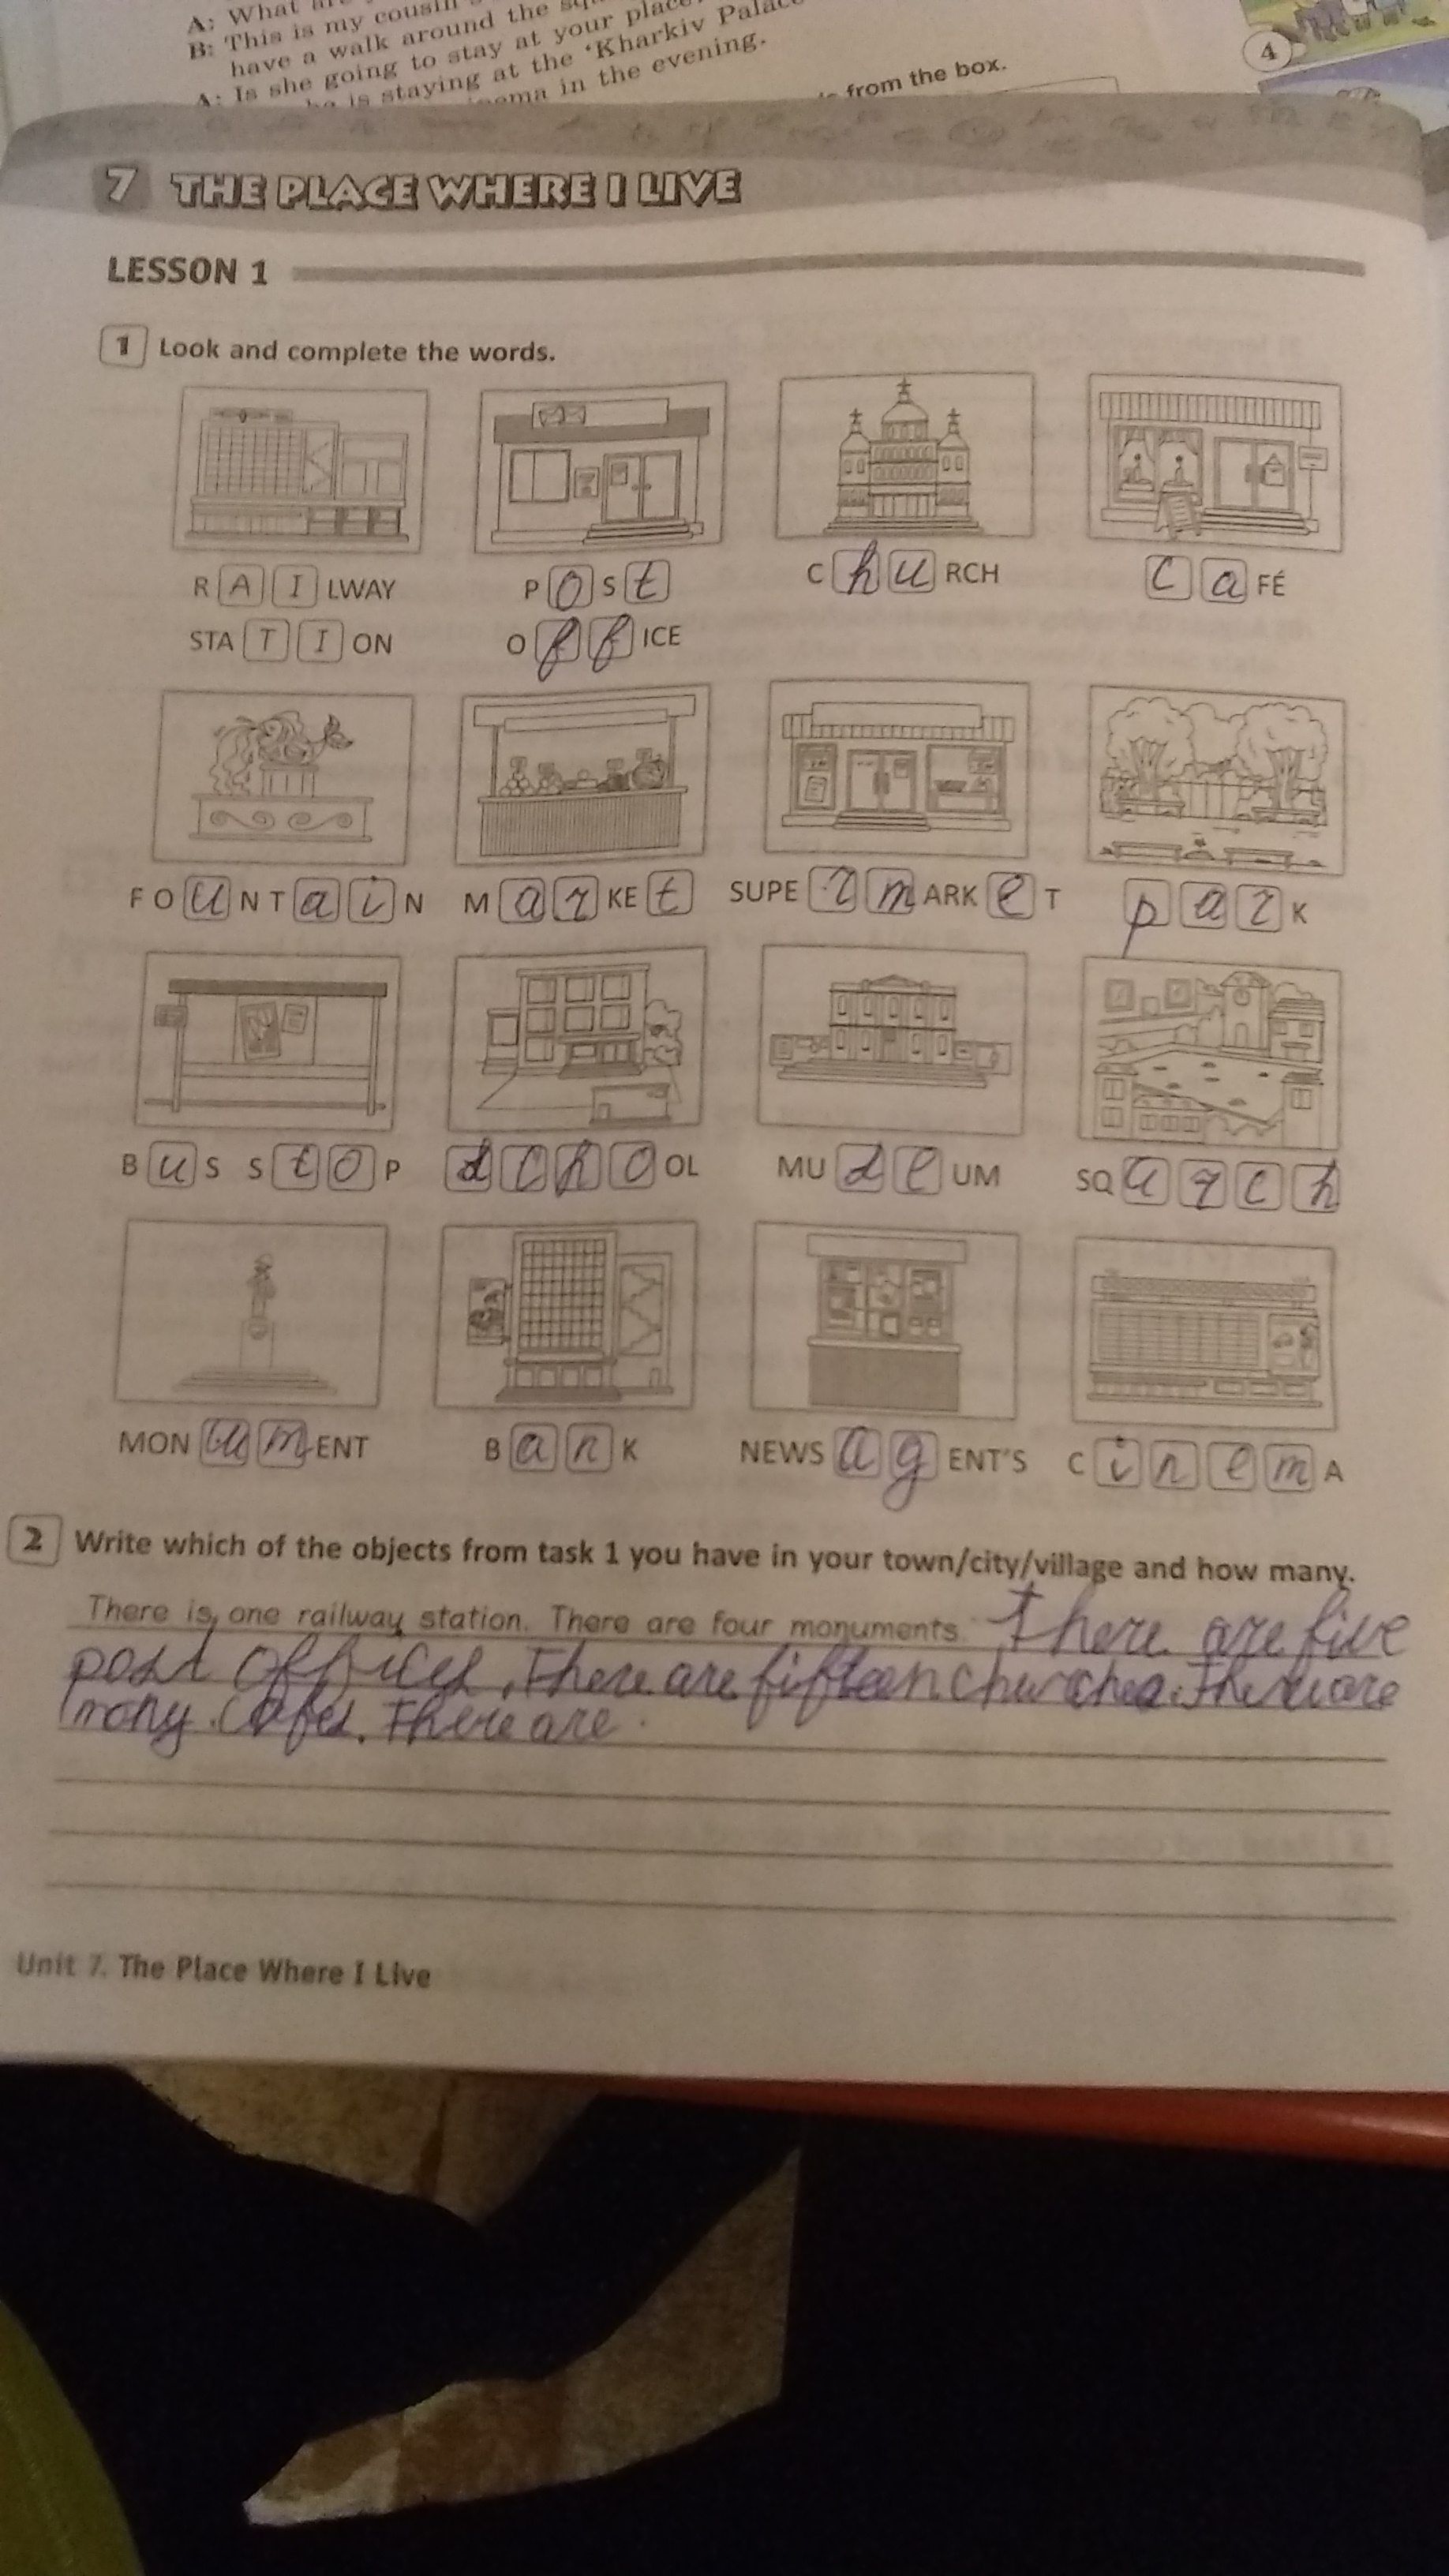 A: What
B: This is my cousin
have a walk around the
A: Is she going to stay at your place
is staying at the ‘Kharkiv Palace
in the evening.
from the box.
4
7 THE PLACE WHERE I LIVE
LESSON 1
1 Look and complete the words.
RAILWAY Post Church CaFÉ
STATION OffICE
FOuNTaiN MarKEt SUPErmARKeT parK
BuS StoP schoOL MUseUM SQurch
MONumENT BanK NEWSagENT'S CinemA
2 Write which of the objects from task 1 you have in your town/city/village and how many.
There is one railway station. There are four monuments. There are five
post offices. There are fifteen churches. There are
many cafes. There are
Unit 7. The Place Where I Live